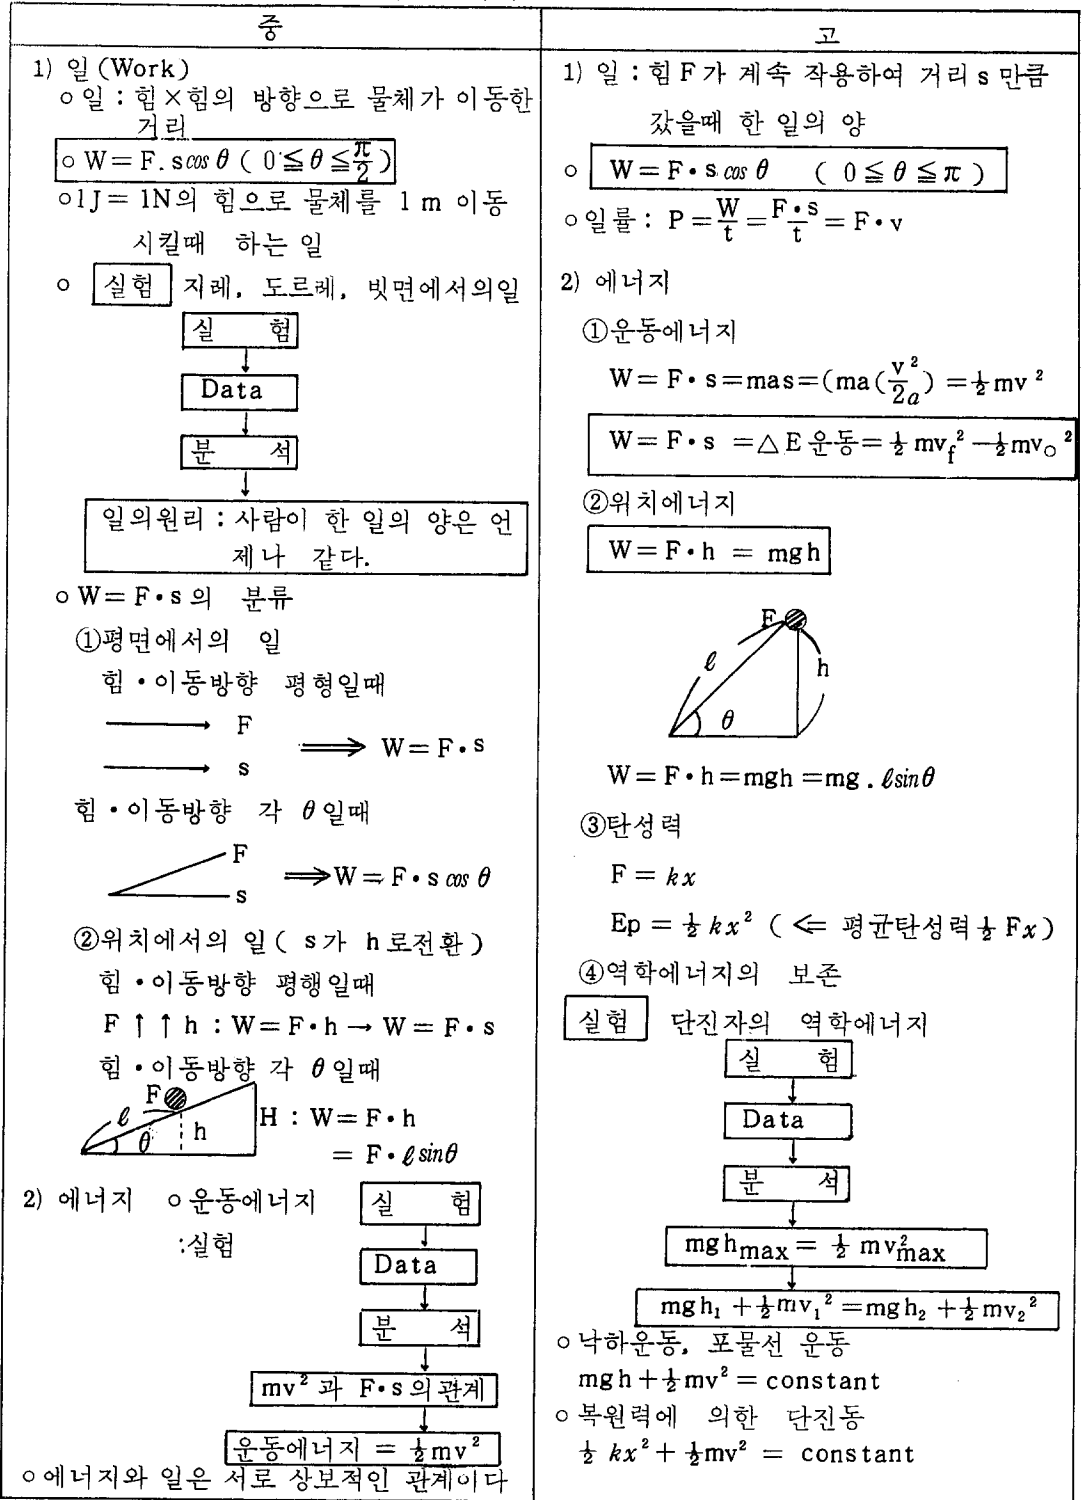 중
1) 일 (Work)
○일 : 힘×힘의 방향으로 물체가 이동한
거리
○ W = F. s cos θ ( 0 ≦ θ ≦ π/2 )
○1J = 1N의 힘으로 물체를 1 m 이동
시킬때 하는 일
○ 실험 지레, 도르레, 빗면에서의일
실 험
Data
분 석
일의원리 : 사람이 한 일의 양은 언
제나 같다.
○ W = F• s 의 분류
①평면에서의 일
힘 • 이동방향 평형일때
F
s
⟹ W = F • s
힘 • 이동방향 각 θ 일때
F
s
⟹ W = F • s cos θ
②위치에서의 일 ( s가 h 로전환 )
힘 • 이동방향 평행일때
F ↑ ↑ h : W = F•h → W = F • s
힘 • 이동방향 각 θ 일때
F
ℓ
θ
h
H : W = F • h
= F • ℓ sinθ
2) 에너지 ○ 운동에너지
:실험
실 험
Data
분 석
mv² 과 F•s 의 관계
운동에너지 = ½mv²
○에너지와 일은 서로 상보적인 관계이다
고
1) 일 : 힘 F 가 계속 작용하여 거리 s 만큼
갔을때 한 일의 양
○ W = F • s cos θ ( 0 ≦ θ ≦ π )
○일률 : P = W/t = F • s/t = F • v
2) 에너지
①운동에너지
W = F • s = mas = (ma (v²/2a) = ½ mv ²
W = F • s = △ E 운동 = ½ mv_f² − ½ mv_o²
②위치에너지
W = F • h = mgh
F
ℓ
h
θ
W = F • h = mgh = mg . ℓsinθ
③탄성력
F = kx
Ep = ½ kx² ( ⇐ 평균탄성력 ½ Fx )
④역학에너지의 보존
실험 단진자의 역학에너지
실 험
Data
분 석
mgh_max = ½ mv²_max
mgh₁ + ½mv₁² = mgh₂ + ½mv₂²
○ 낙하운동, 포물선 운동
mgh + ½mv² = constant
○ 복원력에 의한 단진동
½ kx² + ½mv² = constant